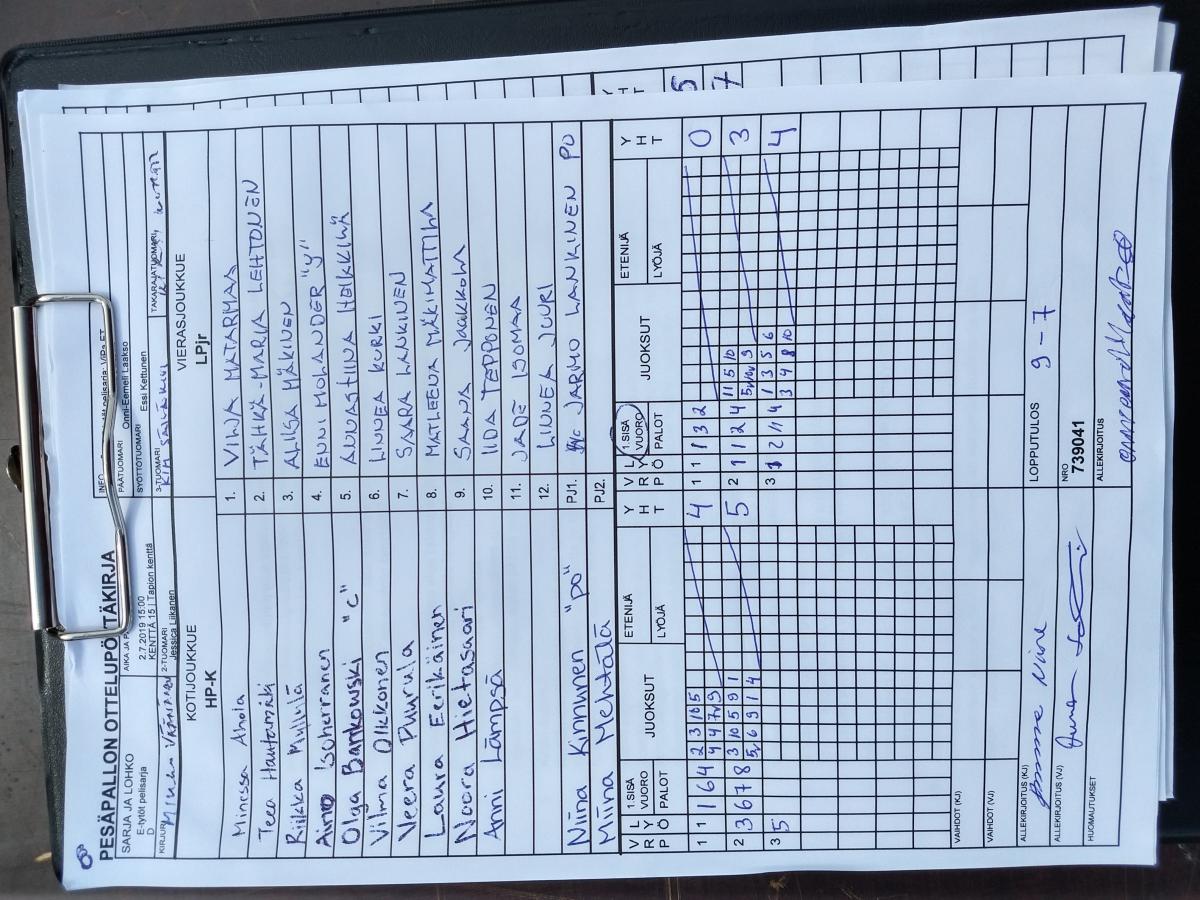 PESÄPALLON OTTELUPÖYTÄKIRJA
SARJA JA LOHKO
E-tytöt pelisarja
D
AIKA JA
2.7.2019 15:00
KENTTÄ 15 | Tapion kenttä
INFO
pelisarja ViPa ET
PÄÄTUOMARI
Onni-Eemeli Laakso
SYÖTTÖTUOMARI
Essi Kettunen
KIRJURI
2-TUOMARI
Jessica Liikanen
3-TUOMARI
TAKARAJATUOMARI
KOTIJOUKKUE
HP-K
VIERASJOUKKUE
LPjr
Minessa Ahola
1. VILJA MATARMAA
Teea Hautamäki
2. TÄHKÄ-MARIA LEHTONEN
Riikka
3. ALIISA MÄKINEN
Aino Isoherranen
4. ENNI MOLANDER "y"
Olga Bankowski "c"
5. ANNASTIINA HEIKKILÄ
Vilma Olkkonen
6. LINNEA KURKI
Neera Puurula
7. SAARA LANKINEN
Laura Eerikäinen
8. MATLEENA MÄKIMATTILA
Noora Hietasaari
9. SAANA JAAKKOLA
Anni Lämpsä
10. IIDA TEPPONEN
11. JADE ISOMAA
12. LINNEA JUURI
Niina Kinnunen "po"
PJ1. JARMO LANKINEN PO
Miina Mehtälä
PJ2.
V R P L Y Ö 1.SISÄ VUORO PALOT JUOKSUT ETENIJÄ LYÖJÄ Y H T
V R P L Y Ö 1.SISÄ VUORO PALOT JUOKSUT ETENIJÄ LYÖJÄ Y H T
1 1 1 6 4 2 3 10 5 4
4 4 7 9
1 1 1 3 2 0
2 3 6 7 8 3 10 5 9 1 5
5 6 9 1 4
2 1 1 2 4 11 5 10 3
3 5
3 1 2 11 4 1 3 5 6 4
3 4 8 10
VAIHDOT (KJ)
VAIHDOT (VJ)
ALLEKIRJOITUS (KJ)
LOPPUTULOS 9 - 7
ALLEKIRJOITUS (VJ)
NRO
739041
HUOMAUTUKSET
ALLEKIRJOITUS